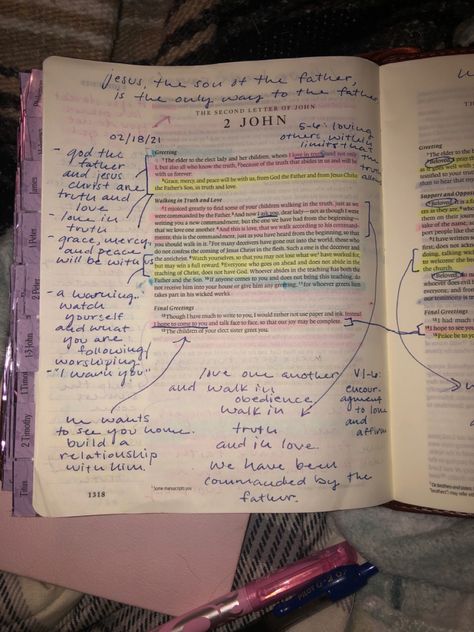 Jesus, the son of the father,
is the only way to the father
THE SECOND LETTER OF JOHN
2 JOHN
02/18/21
5-6: loving
others within
limits that
the
truth
- God the
father
and Jesus
Christ are
truth and
love
- love in
truth
grace, mercy,
and peace
will be with us
- a warning.
watch
yourself
and what
you are
following/
worshiping.
- "I warn you"
Greeting
1 The elder to the elect lady and her children, whom I love in truth, and not only
I, but also all who know the truth, 2 because of the truth that abides in us and will be
with us forever:
3 Grace, mercy, and peace will be with us, from God the Father and from Jesus Christ
the Father's Son, in truth and love.
Walking in Truth and Love
4 I rejoiced greatly to find some of your children walking in the truth, just as we
were commanded by the Father. 5 And now I ask you, dear lady—not as though I were
writing you a new commandment, but the one we have had from the beginning—
that we love one another. 6 And this is love, that we walk according to his command-
ments; this is the commandment, just as you have heard from the beginning, so that
you should walk in it. 7 For many deceivers have gone out into the world, those who
do not confess the coming of Jesus Christ in the flesh. Such a one is the deceiver and
the antichrist. 8 Watch yourselves, so that you may not lose what we have worked for,
but may win a full reward. 9 Everyone who goes on ahead and does not abide in the
teaching of Christ, does not have God. Whoever abides in the teaching has both the
Father and the Son. 10 If anyone comes to you and does not bring this teaching, do
not receive him into your house or give him any greeting, 11 for whoever greets him
takes part in his wicked works.
Final Greetings
12 Though I have much to write to you, I would rather not use paper and ink. Instead
I hope to come to you and talk face to face, so that our joy may be complete.
13 The children of your elect sister greet you.
He wants
to see you home.
build a
relationship
with Him
love one another
and walk in
obedience
walk in
truth
and in love.
we have been
commanded by the
father.
V1-6:
encour-
agement
to love
and
affirm
1318
1 Some manuscripts you
James
1 Peter
2 Peter
1-3 John
1 Timothy
2 Timothy
Titus
Greeting
Beloved
Support and Oppos
Final Greetings
I had much
I hope to see
Peace be to you